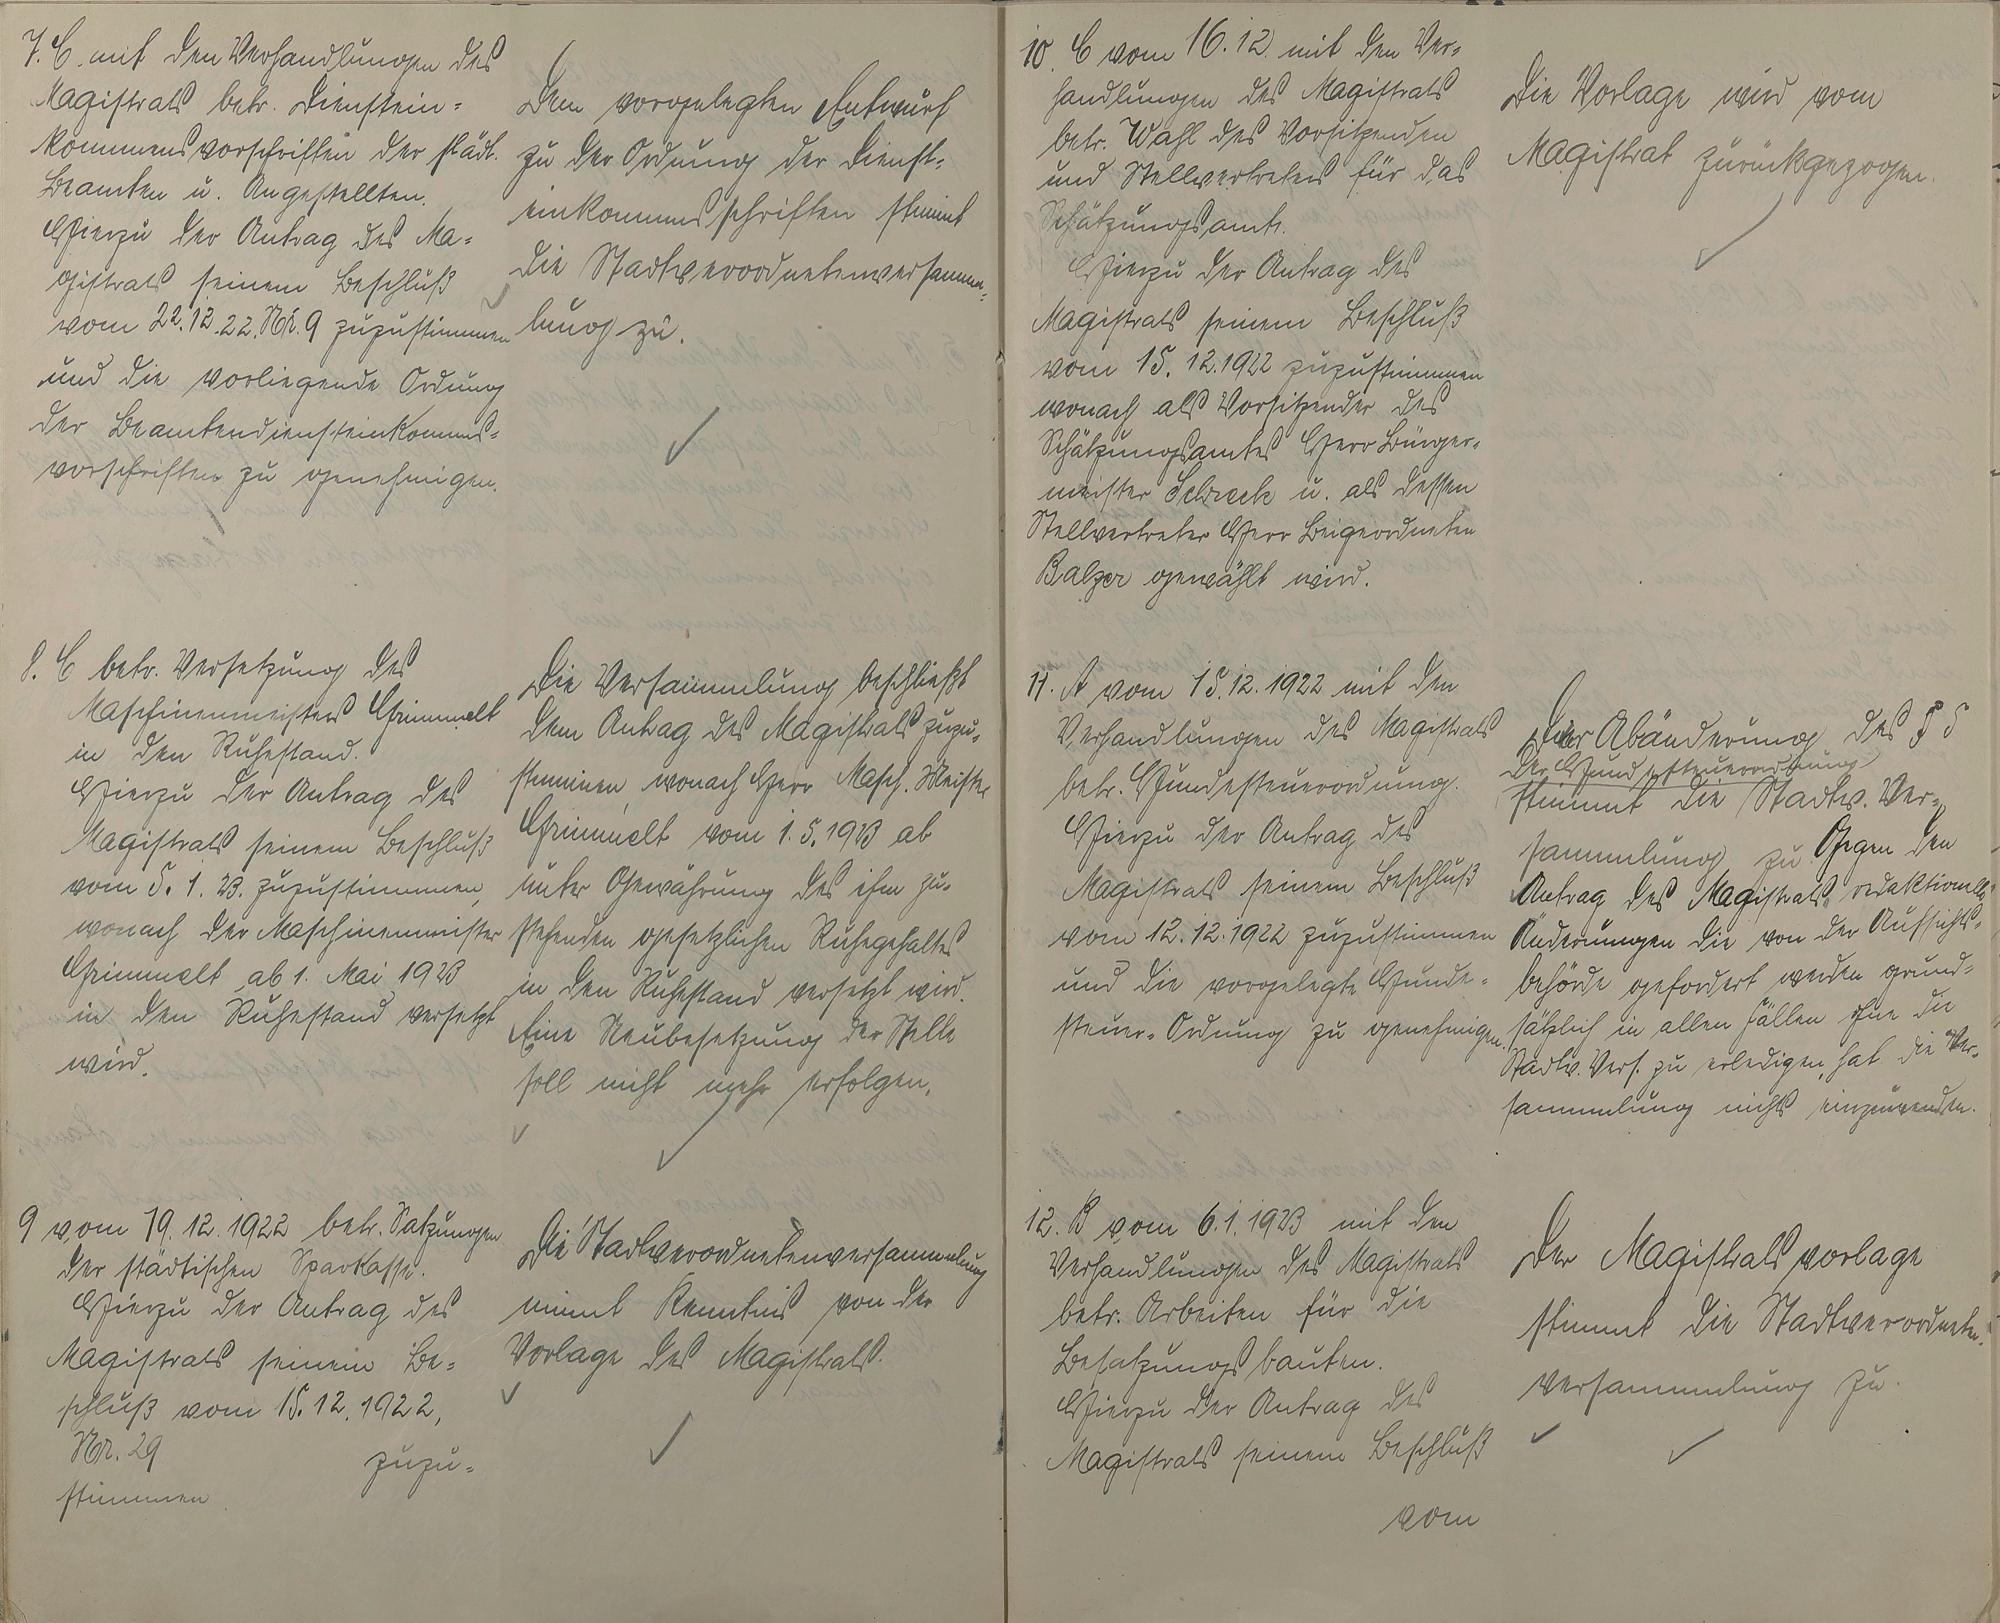 7. C. mit den Verhandlungen des
Magistrats betr. Dienstein-
kommensvorschriften der städt.
Beamten u. Angestellten.
Hierzu der Antrag des Ma-
gistrats seinem Beschluß
vom 22.12.22. Nr. 9 zuzustimmen
und die vorliegende Ordnung
der Beamtendiensteinkomms-
vorschriften zu genehmigen.
Dem vorgelegten Entwurf
zu der Ordnung der Dienst-
einkommensschriften stimmt
die Stadtverordnetenversamm-
lung zu.
8. C betr. Versetzung des
Maschinenmeisters Grimmelt
in den Ruhestand.
Hierzu der Antrag des
Magistrats seinem Beschluß
vom 5. 1. 23. zuzustimmen,
wonach der Maschinenmeister
Grimmelt ab 1. Mai 1923
in den Ruhestand versetzt
wird.
Die Versammlung beschließt
dem Antrag des Magistrats zuzu-
stimmen, wonach Herr Masch. Meister
Grimmelt vom 1. 5. 1923 ab
unter Gewährung des ihm zu-
stehenden gesetzlichen Ruhegehaltes
in den Ruhestand versetzt wird.
Eine Neubesetzung der Stelle
soll nicht mehr erfolgen.
9 vom 19. 12. 1922 betr. Satzungen
der städtischen Sparkasse.
Hierzu der Antrag des
Magistrats seinem Be-
schluß vom 15. 12. 1922,
Nr. 29 zuzu-
stimmen.
Die Stadtverordnetenversammlung
nimmt Kenntnis von der
Vorlage des Magistrats.
10. C vom 16.12. mit den Ver-
handlungen des Magistrats
betr. Wahl des Vorsitzenden
und Stellvertreters für das
Schätzungsamt.
Hierzu der Antrag des
Magistrats seinem Beschluß
vom 15. 12. 1922 zuzustimmen
wonach als Vorsitzender des
Schätzungsamtes Herr Bürger-
meister u. als dessen
Stellvertreter Herr Beigeordneten
Balzer gewählt wird.
Die Vorlage wird vom
Magistrat zurückgezogen.
11. A vom 15. 12. 1922 mit den
Verhandlungen des Magistrats
betr. Hundesteuerordnung.
Hierzu der Antrag des
Magistrats seinem Beschluß
vom 12. 12. 1922 zuzustimmen
und die vorgelegte Hunde-
steuer-Ordnung zu genehmigen.
Der Abänderung des § 5
der Hundesteuerordnung
stimmt die Stadtv. Ver-
sammlung zu. Gegen den
Antrag des Magistrats, redaktionelle
Änderungen die von der Aufsichts-
behörde gefordert werden grund-
sätzlich in allen Fällen ohne die
Stadtv. Vers. zu erledigen, hat die Ver-
sammlung nichts einzuwenden.
12. B vom 6. 1. 1923 mit den
Verhandlungen des Magistrats
betr. Arbeiten für die
Besatzungsbauten.
Hierzu der Antrag des
Magistrats seinem Beschluß
vom
Der Magistratsvorlage
stimmt die Stadtverordneten-
versammlung zu.